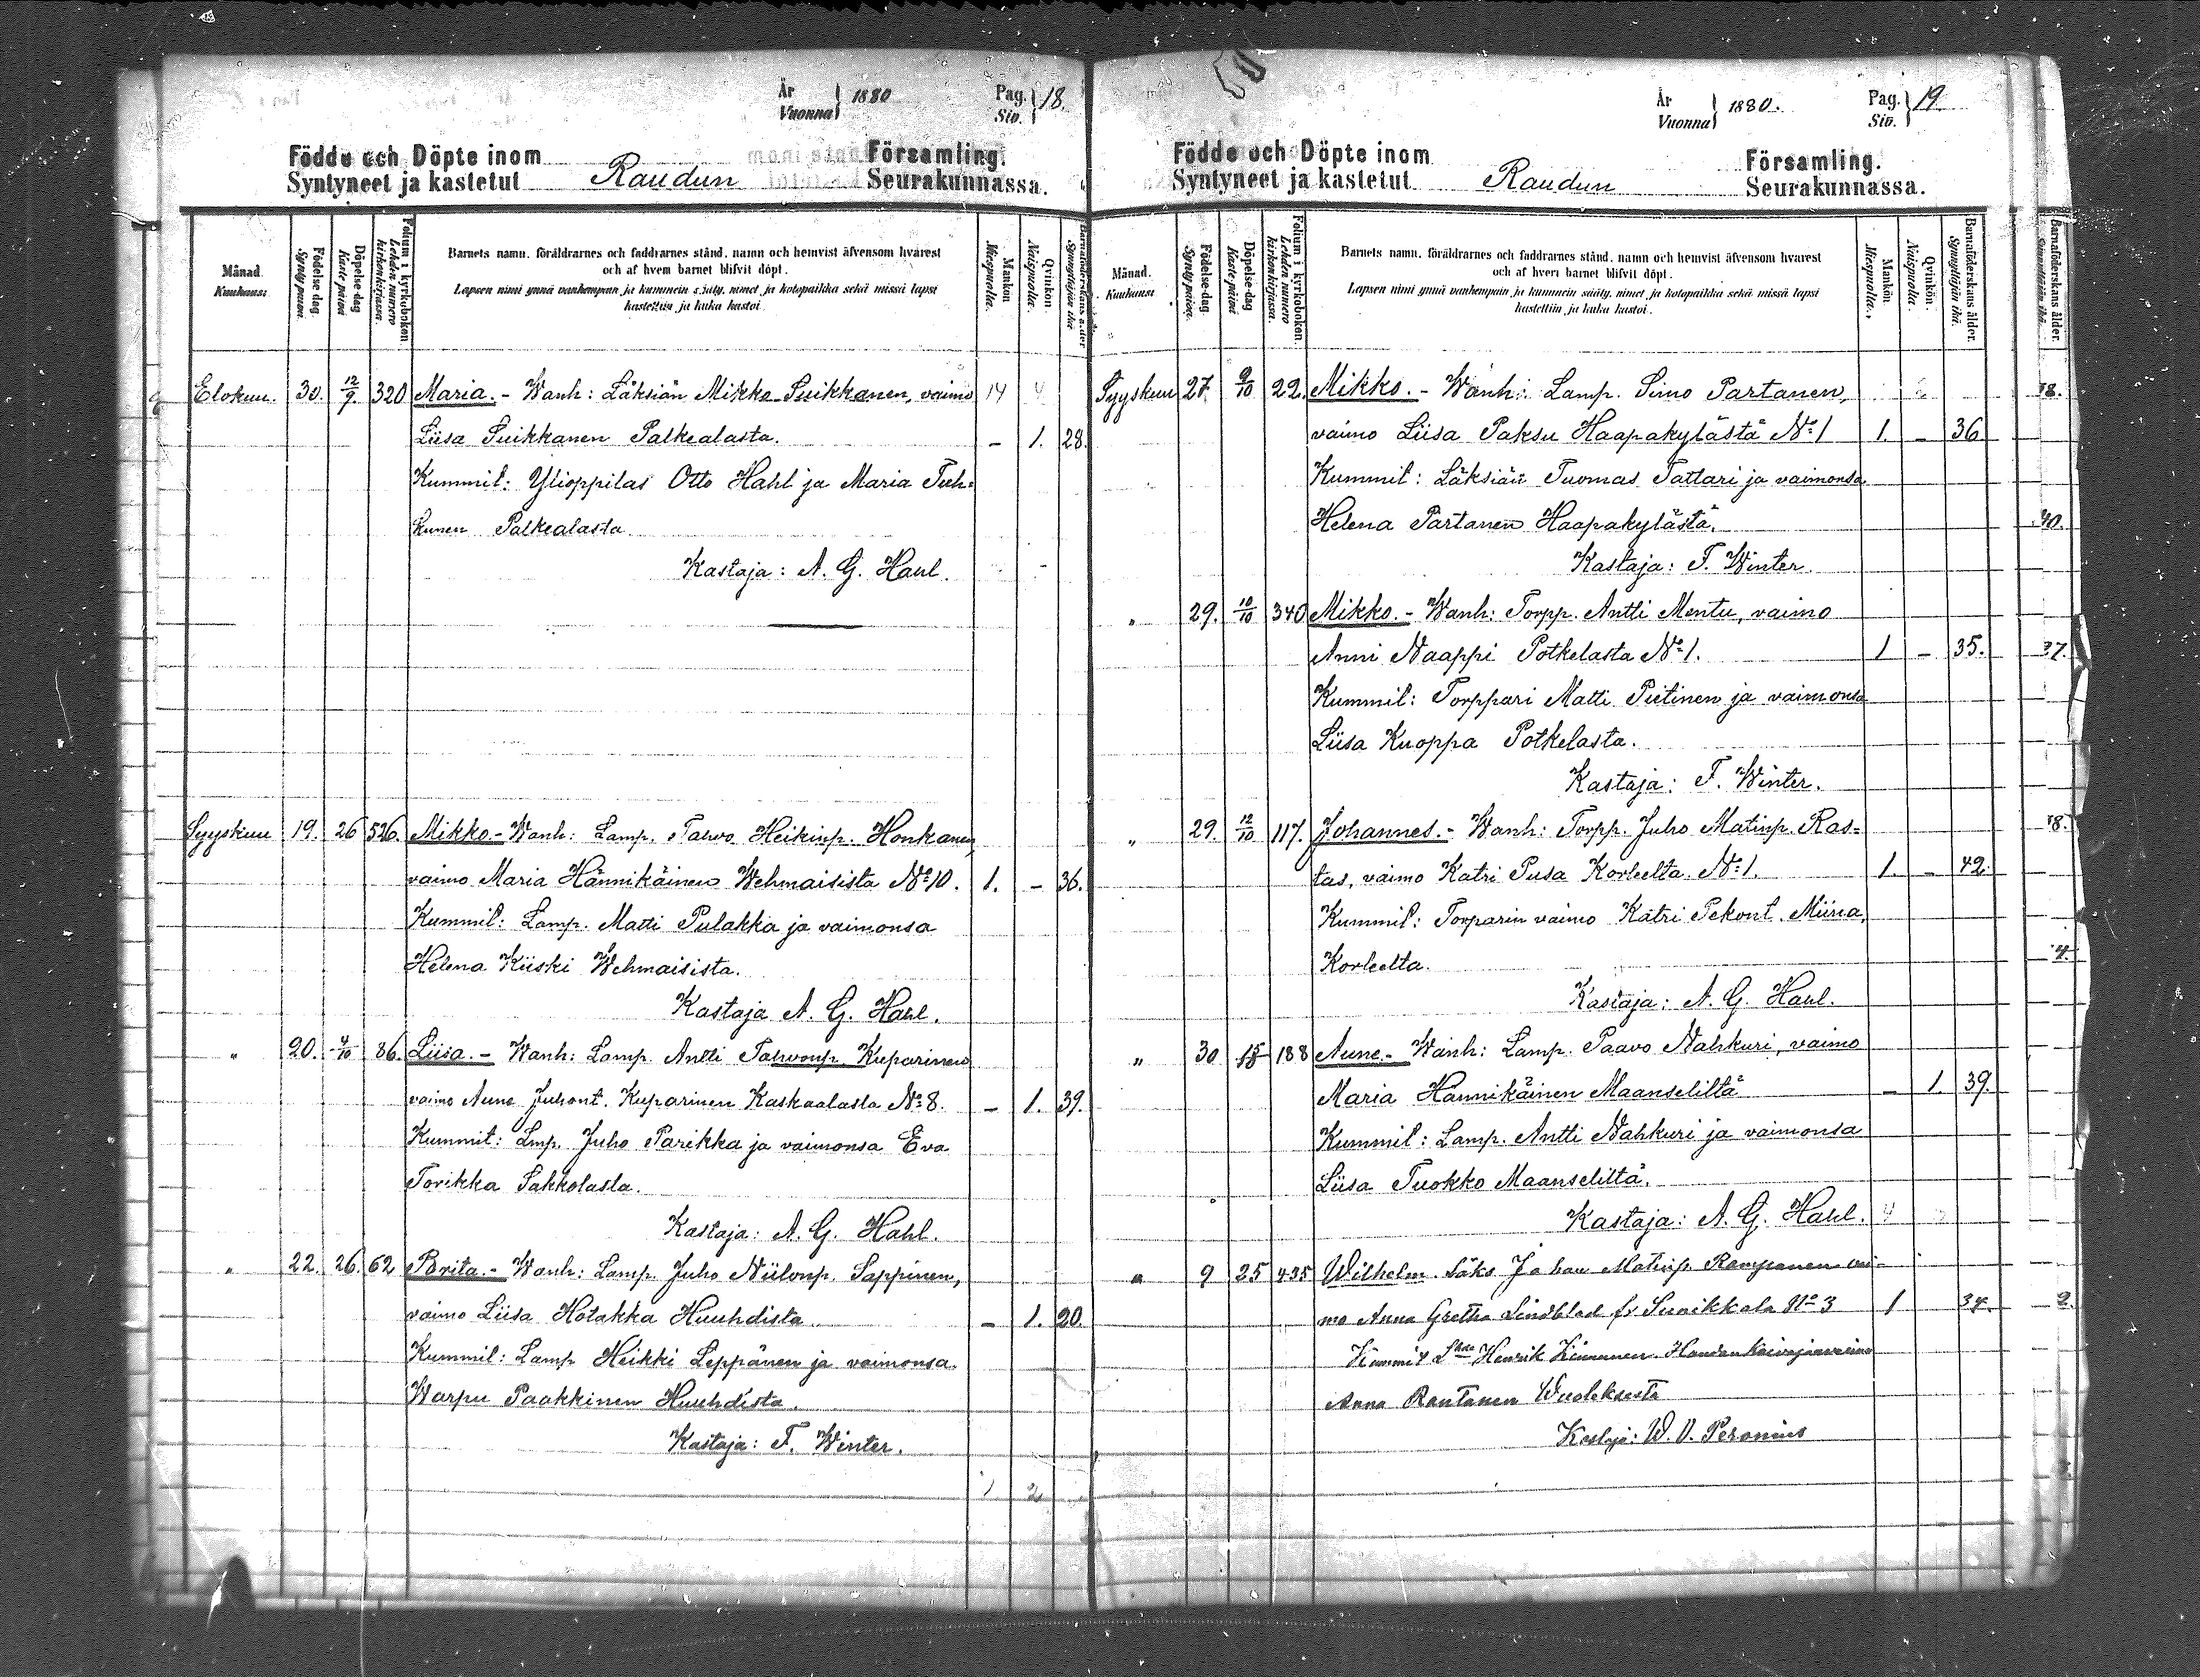 År
Vuonna } 1880 Pag.
Siv. } 18.
Födde och Döpte inom Församling.
Syntyneet ja kastetut Raudun Seurakunnassa.
Månad.
Kuukausi
Födelse dag
Syntypäivä.
Döpelse-dag
Kaste päivä
Folium i kyrkoboken
Lehden numero kirkonkirjassa.
Barnets namn, föräldrarnes och faddrarnes stånd, namn och hemvist äfvensom hvarest
och af hvem barnet blifvit döpt.
Lapsen nimi ynnä vanhempain ja kummein sääty, nimet ja kotopaikka sekä missä lapsi
kastettiin ja kuka kastoi.
Mankön.
Miespuolia.
Qvinkön.
Naispuolia.
Barnaföderskans ålder
Synnyttäjän ikä
Elokuu. 30. 12/9. 320 Maria. - Wanh: Läksiän Mikko Suikkanen, vaimo 14 4
Liisa Suikkanen Palkealasta. - 1. 28.
Kummit: Ylioppilas Otto Hahl ja Maria Tuh=
kunen Palkealasta
Kastaja: A. G. Hahl.
Syyskuu 19. 26 526. Mikko. - Wanh: Lamp. Pawo Heikinp. Honkanen,
vaimo Maria Hännikäinen Wehmaisista No 10. 1. - 36.
Kummit: Lamp. Matti Pulakka ja vaimonsa
Helena Kiiski Wehmaisista.
Kastaja A. G. Hahl.
" 20. 4/10 86. Liisa. - Wanh: Lamp. Antti Pahvonp. Kuparinen
vaimo Aune Juhont. Kuparinen Kaskaalasta No 8. - 1. 39.
Kummit: Lmp. Juho Parikka ja vaimonsa Eva
Torikka Sakkolasta.
Kastaja: A. G. Hahl.
" 22. 26. 62 Brita. - Wanh: Lamp. Juho Niilonp. Sappinen,
vaimo Liisa Hotakka Huuhdista. - 1. 20.
Kummit: Lamp Heikki Leppänen ja vaimonsa
Warpu Paakkinen Huuhdista.
Kastaja: F. Winter.
1 2
År
Vuonna } 1880. Pag.
Siv. } 19.
Födde och Döpte inom Församling.
Syntyneet ja kastetut Raudun Seurakunnassa.
Månad.
Kuukausi
Födelse dag
Syntypäivä.
Döpelse-dag
Kaste päivä
Folium i kyrkoboken
Lehden numero kirkonkirjassa.
Barnets namn, föräldrarnes och faddrarnes stånd, namn och hemvist äfvensom hvarest
och af hvem barnet blifvit döpt.
Lapsen nimi ynnä vanhempain ja kummein sääty, nimet ja kotopaikka sekä missä lapsi
kastettiin ja kuka kastoi.
Mankön.
Miespuolia.
Qvinkön.
Naispuolia.
Barnaföderskans ålder.
Synnyttäjän ikä.
Syyskuu 27. 9/10 22. Mikko. - Wanh: Lamp. Simo Partanen,
vaimo Liisa Paksu Haapakylästä No 1 1. - 36
Kummit: Läksiän Tuomas Tattari ja vaimonsa
Helena Partanen Haapakylästä.
Kastaja: F. Winter.
" 29. 10/10 340 Mikko. - Wanh: Torpp. Antti Mentu, vaimo
Anni Naappi Potkelasta No 1. 1 - 35.
Kummit: Torppari Matti Piitinen ja vaimonsa
Liisa Kuoppa Potkelasta.
Kastaja: F. Winter.
" 29. 12/10 117. Johannes. - Wanh: Torpp. Juho Matinp. Ras=
tas, vaimo Katri Pusa Korleelta. No 1. 1. - 42.
Kummit: Torparin vaimo Katri Pekont. Miina,
Korleelta.
Kastaja: A. G. Hahl.
" 30 188 Aune. - Wanh: Lamp. Paavo Nahkuri, vaimo
Maria Hannikäinen Maanseliltä - 1. 39.
Kummit: Lamp. Antti Nahkuri ja vaimonsa
Liisa Tuokko Maanseliltä.
Kastaja: A. G. Hahl. 4
" 9 25 435 Wilhelm. Läks. Johan Matinp. Rampanen vai-
mo Anna Gretha Lindblad fr Suvikkala No 3 1 34.
Kummit Henrik Kinnunen
Anna Rantanen Wuoleksesta
Kastaja: W. V. Peronius
Barnaföderskans ålder.
40.
37.